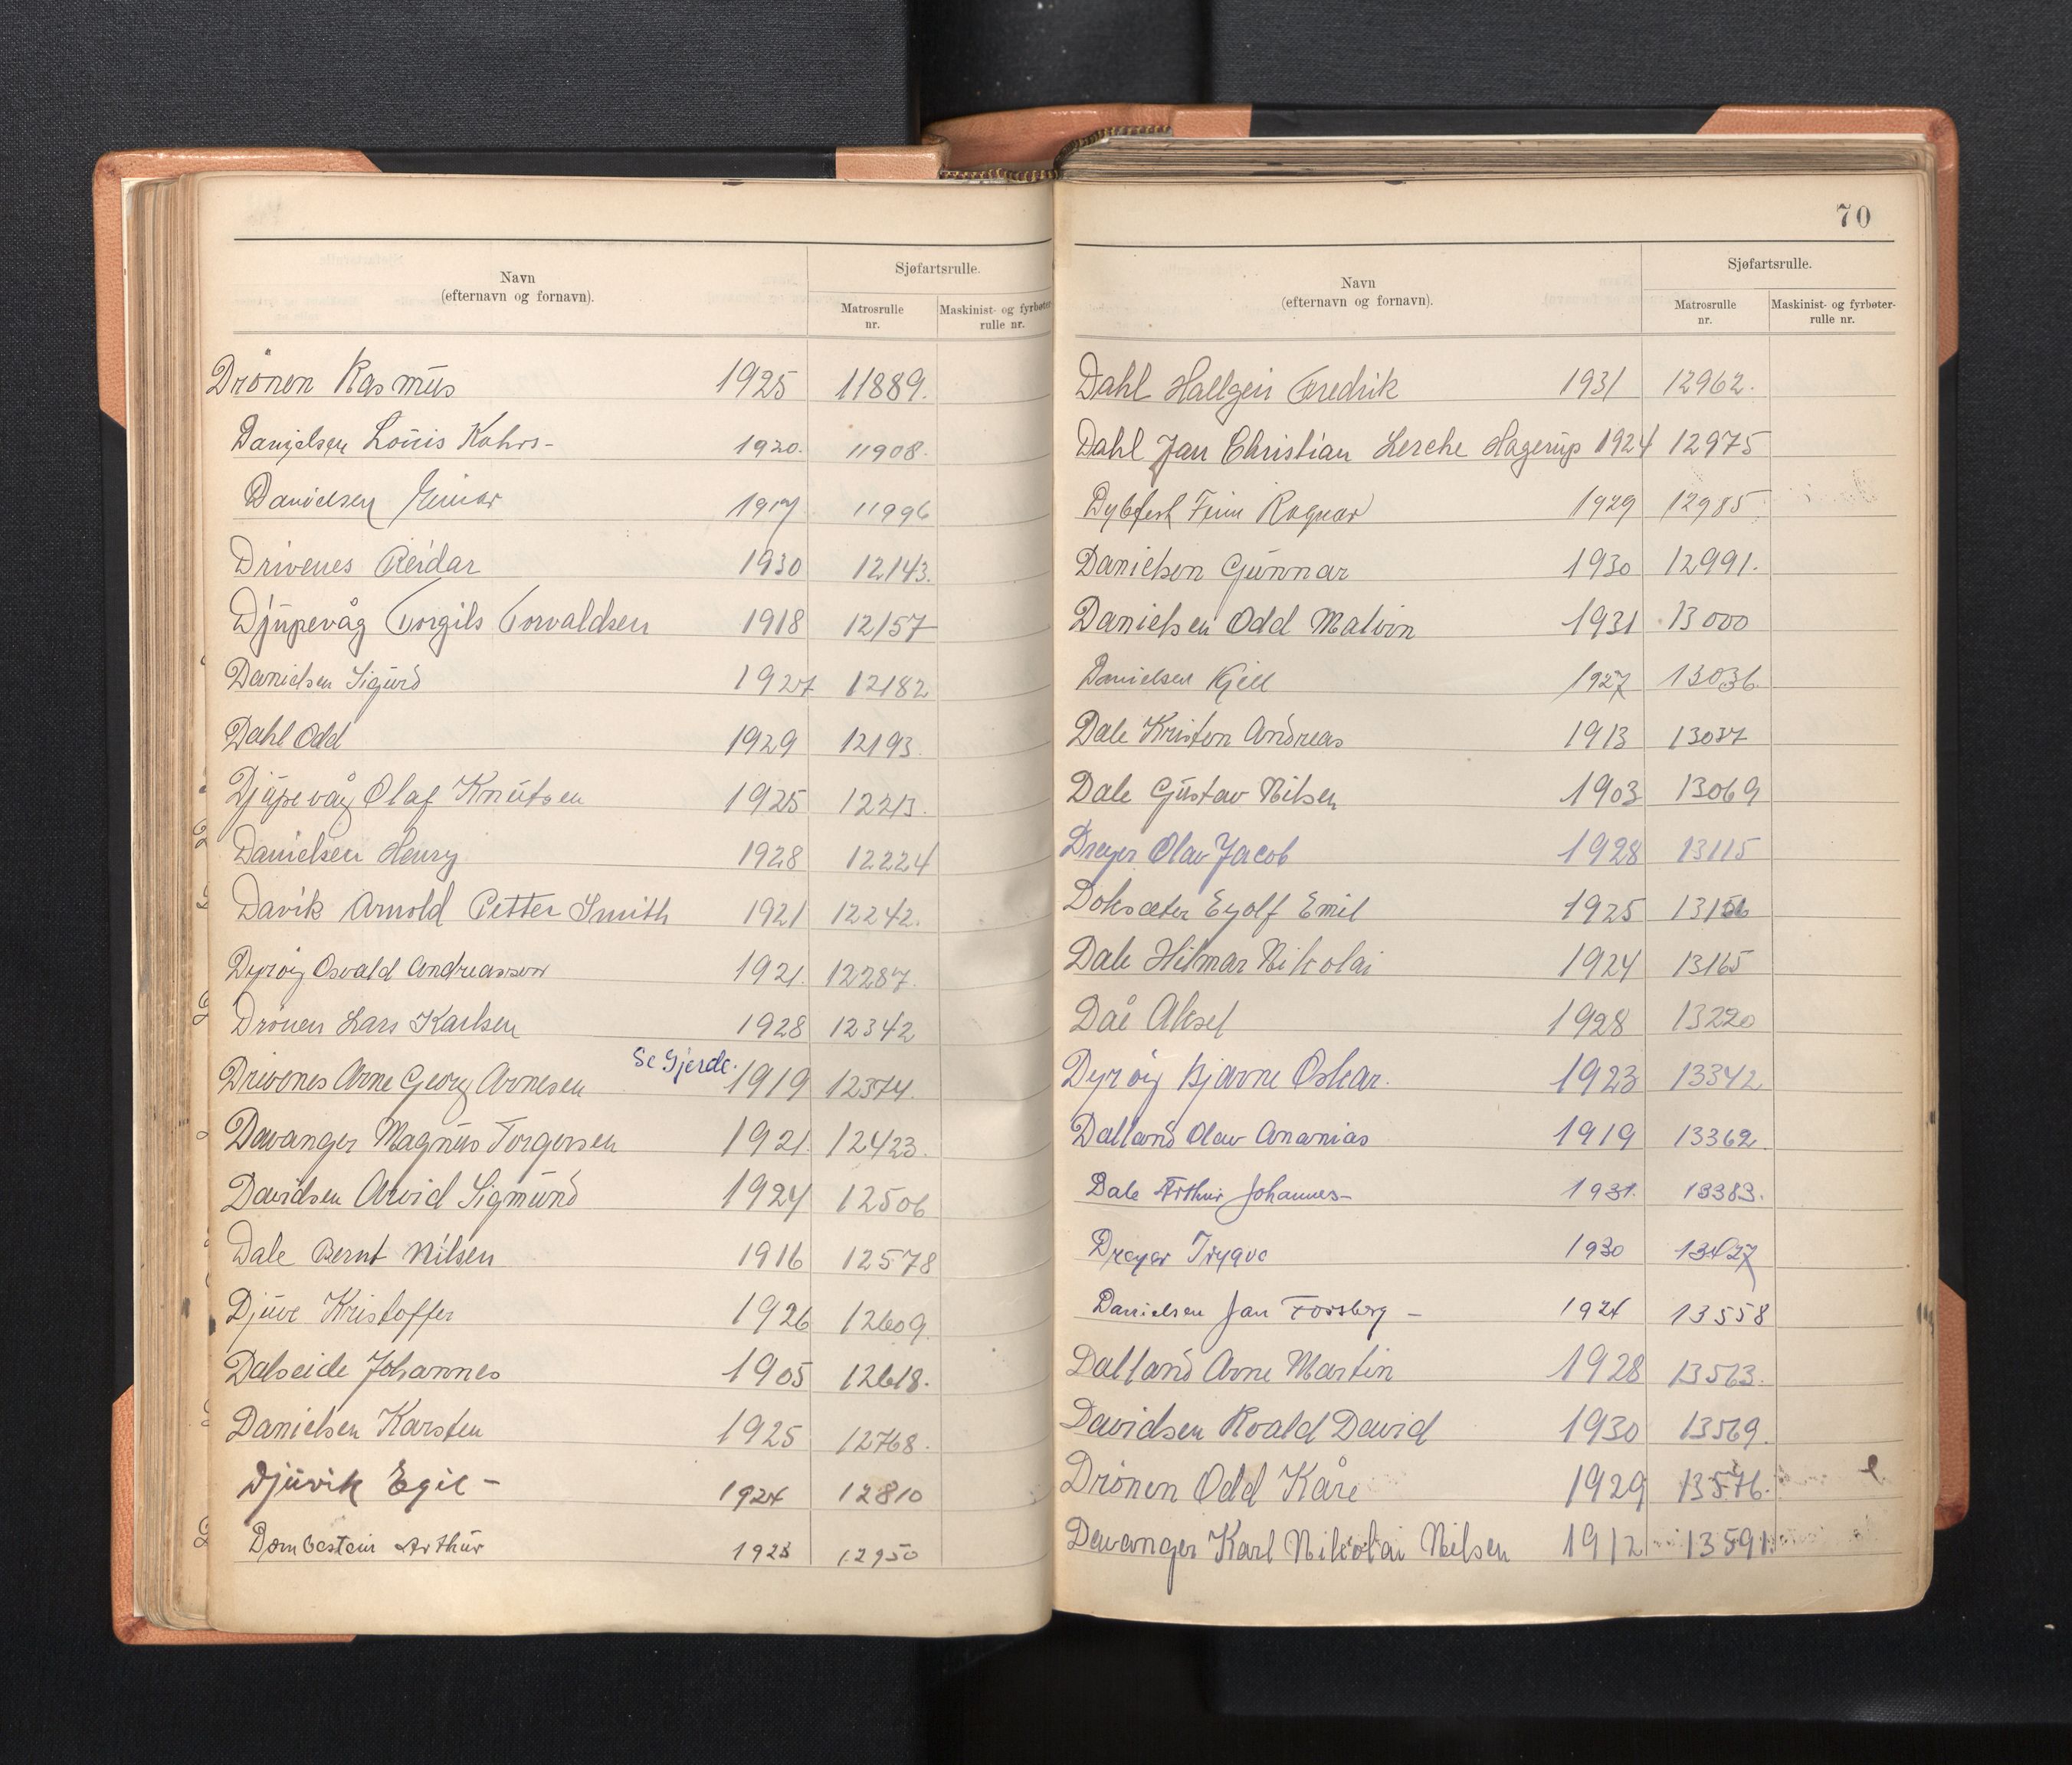 Navn
(efternavn og fornavn).
Sjøfartsrulle.
Matrosrulle nr.
Maskinist- og fyrbøter-rulle nr.
Drönen Rasmus 1925 11889.
Danielsen Louis Kahrs- 1920. 11908.
Danielsen Einar 1917 11996
Drivenes Reidar 1930 12143.
Djupevåg Torgils Torvaldsen 1918 12157
Danielsen Sigurd 1927 12182
Dahl Odd 1929 12193.
Djupevåg Olaf Knutsen 1925 12213.
Danielsen Henry 1928 12224
Davik Arnold Petter Smith 1921 12242.
Dyröy Osvald Andreassen 1921. 12287.
Drönen Lars Karlsen 1928 12342
Drivenes Arne Georg Arnesen Se Gjerde. 1919 12374.
Davanger Magnus Torgersen 1921. 12423.
Davidsen Arvid Sigmund 1924 12506
Dale Bernt Nilsen 1916 12578
Djuve Kristoffer 1926 12609.
Dalseide Johannes 1905 12618.
Danielsen Karsten 1925 12768.
Djuvik Egil - 1924 12810
Dombestein Arthur 1923 12950
70
Navn
(efternavn og fornavn).
Sjøfartsrulle.
Matrosrulle nr.
Maskinist- og fyrbøter-rulle nr.
Dahl Hallgeir Fredrik 1931 12962.
Dahl Jan Christian Lerche Hagerup 1924 12975
Dybfest Finn Ragnar 1929 12985
Danielsen Gunnar 1930 12991.
Danielsen Odd Malvin 1931 13000
Danielsen Kjell 1927 13036.
Dale Kristen Andreas 1913 13037
Dale Gustav Nilsen 1903 13069
Dreyer Olav Jacob 1928 13115
Doksæter Eyolf Emil 1925 13156
Dale Hilmar Nikolai 1924 13165
Daé Aksel 1928 13220
Dyröy Bjarne Oskar. 1923 13342
Dalland Olav Ananias 1919 13362.
Dale Arthur Johannes- 1931. 13383.
Dreyer Trygve 1930 13427
Danielsen Jan Forsberg - 1924 13558
Dalland Arne Martin 1928 13563.
Davidsen Roald David 1930 13569.
Drönen Odd Kåre 1929 13576.
Davanger Karl Nikolai Nilsen 1912 13591